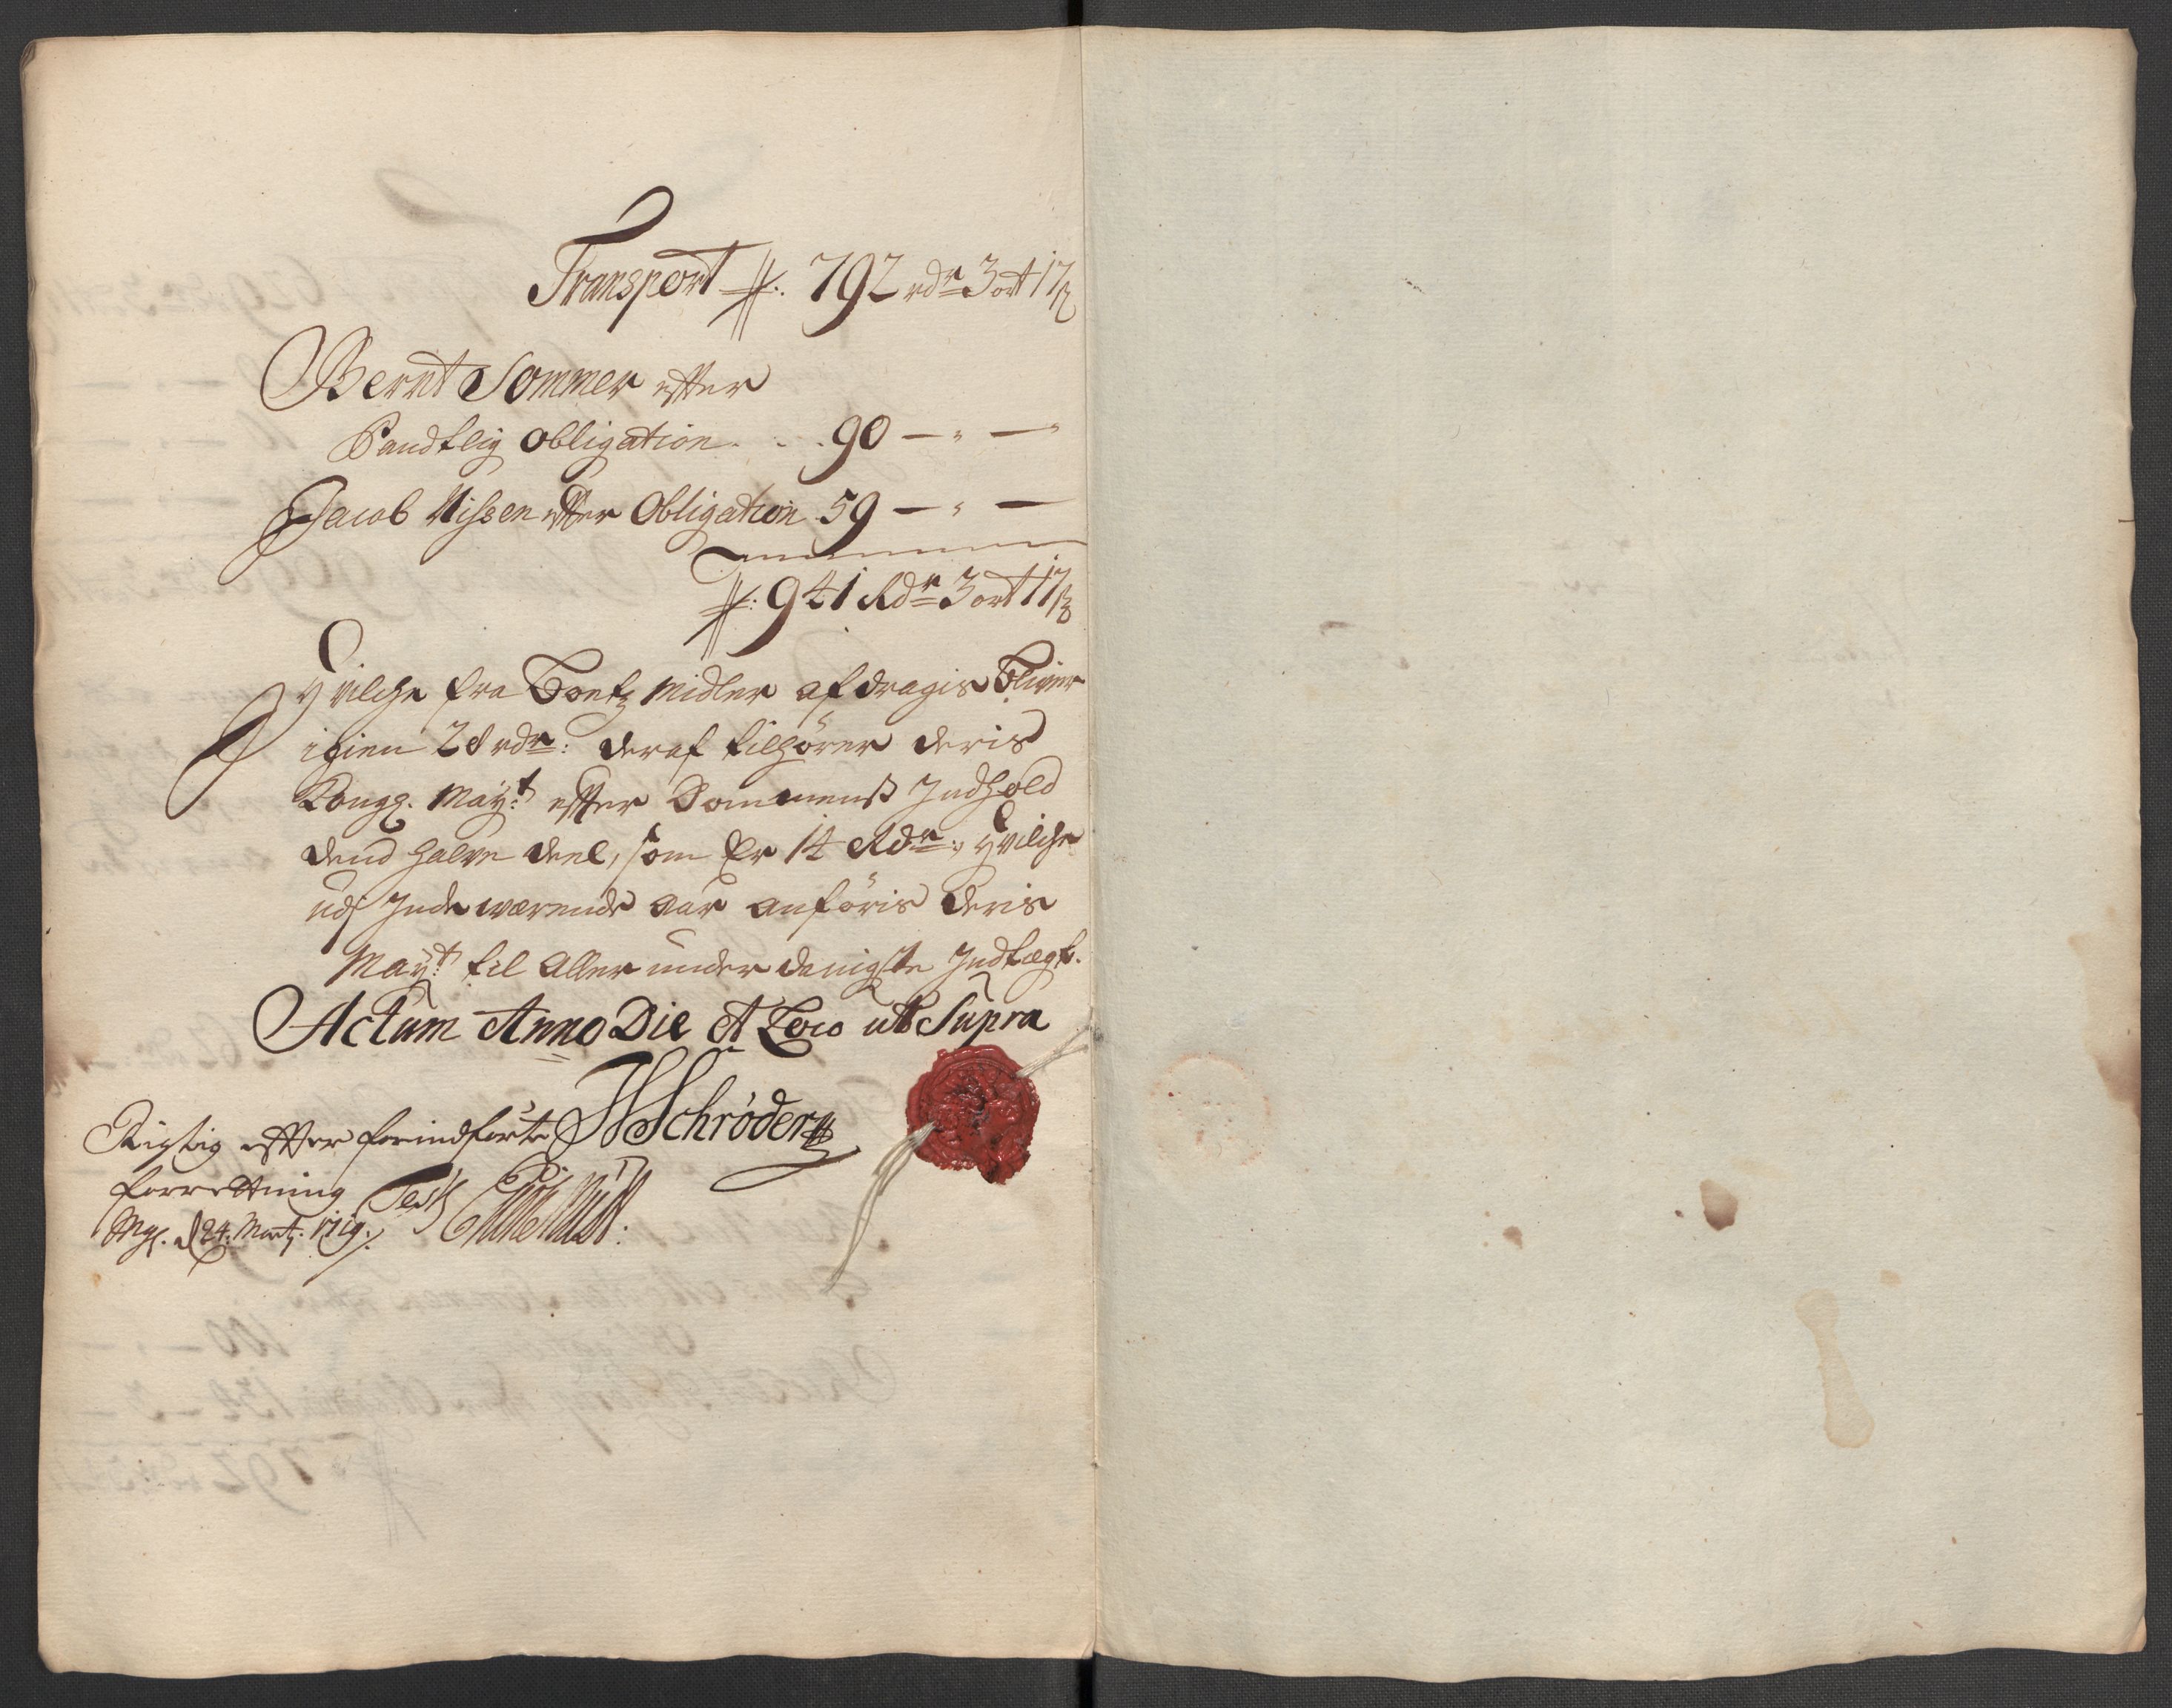 Transport ∦. 792 rdr 3 ort 17 ß
Bernt Sommer efter
Pandtlig Obligation . . . 90 — „ —
Jacob Nissen efter Obligation 59 — „ —
∦: 941 Rdr 3 ort 17 ß
Hvilche fra Boets Midler afdragis bliver
igien 28 rdr: deraf tilhører deris
Kongg. Mayt: efter Dommens Indhold
dend halve deel, som er 14 Rdr:, hvilche
udj Indeværende aar anføris deris
Mayt: til allerunderdanigste Indtægt.
Actum Anno Die et Loco ut Supra
HSchrøder
Rigtig efter forindførte
forretning Test
d 24. Mart. 1719.